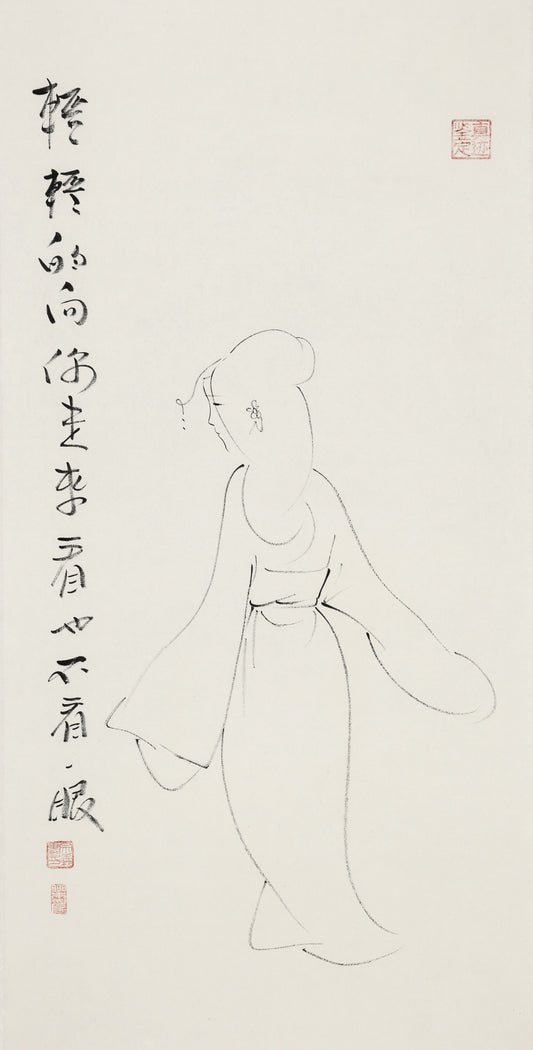 輕輕的向你走来看也不看一眼